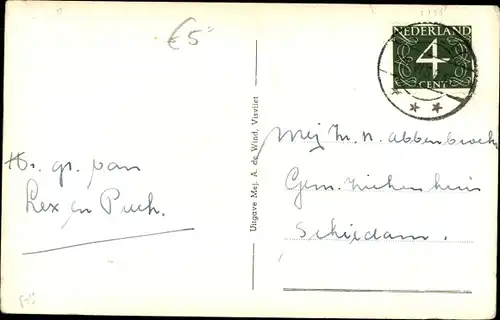 €5
NEDERLAND
4
CENT
Uitgave Mej. A. de Wind, Visvliet
Mej
Gem. Ziekenhuis
Schiedam.
Hr. gr. van
Lex en Puck.